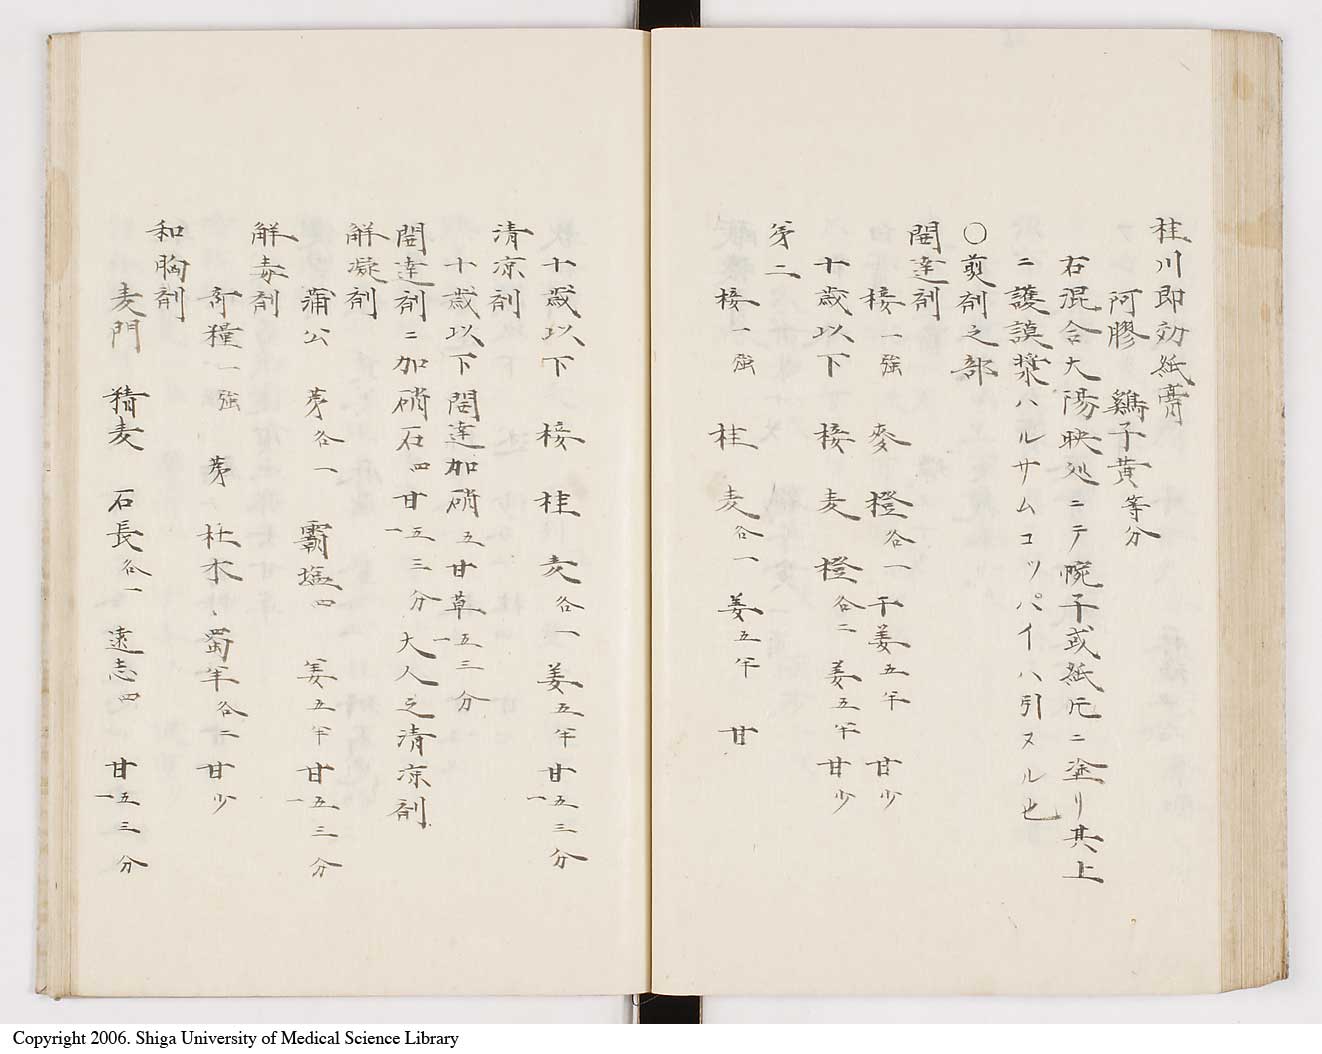 桂川即効紙膏
阿膠 鷄子黄等分
右混合大陽映処ニテ腕子或紙凡ニ塗リ其上
ニ護謨漿ハルサムコッパイハ引ヌル也
〇煎剤之部
開達剤
接一強 麥 橙各一 干姜五半 甘少
十歳以下 接 麦 橙各二 姜五半 甘少
第二
接一強 桂 麦各一 姜五半 甘
十歳以下 接 桂 麦各一 姜五半 甘一五三分
清凉剤
十歳以下開達加硝五甘草一五三分
開達剤ニ加硝石四甘一五三分大人之清凉剤
解凝剤
蒲公 茅各一 霸塩四 姜五半 甘一五三分
解毒剤
奇糧一強 茅 杜木、蜀羊各二 甘少
和胸剤
麦門 精麦 石長各一 遠志四 甘一五三分
Copyright 2006. Shiga University of Medical Science Library